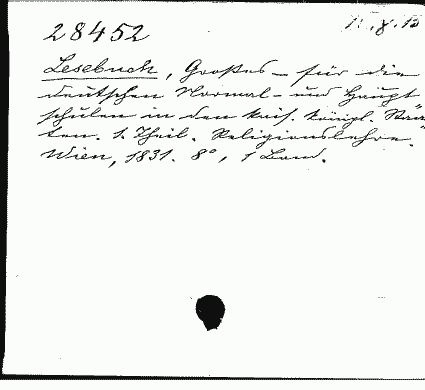 28452
Lesebuch, Großes – für die
deutschen Normal- und Haupt-
schulen in den kais. königl. Staa-
ten. 1. Theil. Religionslehre.
Wien, 1831. 8°, 1 Band.